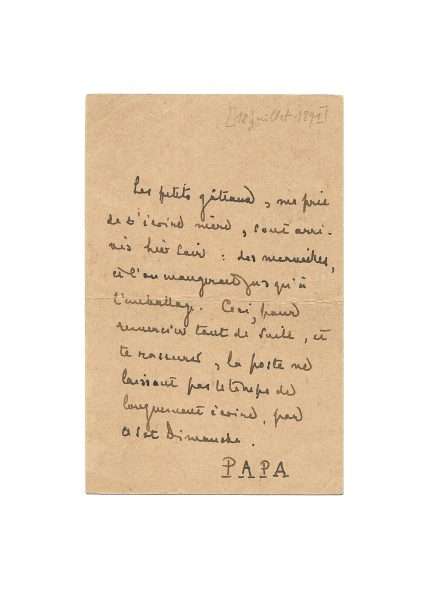 [juillet 1891]
Les petits gâteaux, me prie
de t'écrire mère, sont arri-
vés hier soir : des merveilles,
et l'on mangerait jusqu'à
l'emballage. Ceci, pour
remercier tout de suite, et
te rassurer, la poste ne
laissant pas le temps de
longuement écrire, par
ce sot Dimanche.
PAPA